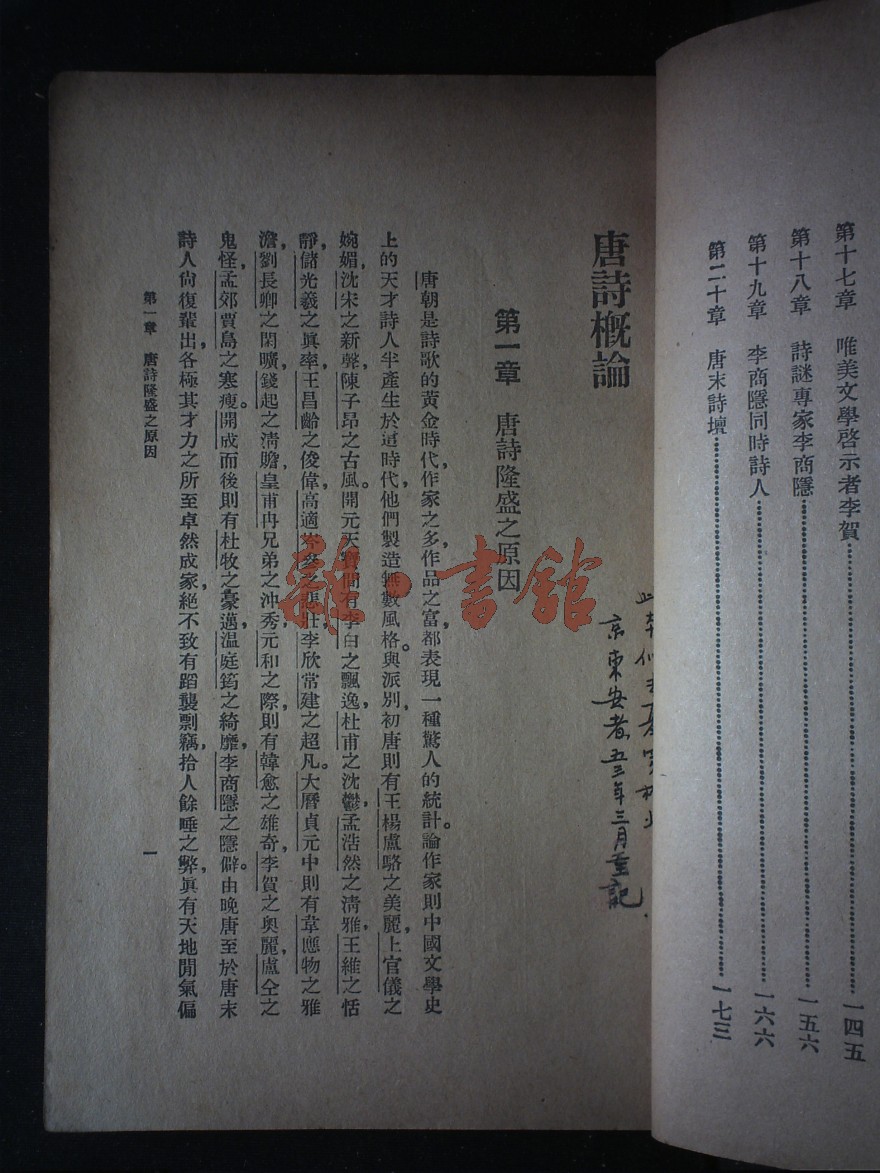 第十七章　唯美文學啓示者李賀……一四五
第十八章　詩謎專家李商隱……一五六
第十九章　李商隱同時詩人……一六六
第二十章　唐末詩壇……一七三
京東安者，五三年三月重記
唐詩概論
第一章　唐詩隆盛之原因
唐朝是詩歌的黃金時代，作家之多，作品之富，都表現一種驚人的統計。論作家則中國文學史
上的天才詩人半產生於這時代，他們製造無數風格。與派別，初唐則有王楊盧駱之美麗，上官儀之
婉媚，沈宋之新聲，陳子昂之古風。開元天寶間有李白之飄逸，杜甫之沈鬱，孟浩然之清雅，王維之恬
靜，儲光羲之眞率，王昌齡之俊偉，高適岑參之悲壯，李欣常建之超凡。大曆貞元中則有韋應物之雅
澹，劉長卿之閑曠，錢起之清贍，皇甫冉兄弟之沖秀，元和之際，則有韓愈之雄奇，李賀之奧麗，盧仝之
鬼怪，孟郊賈島之寒瘦。開成而後則有杜牧之豪邁，温庭筠之綺靡，李商隱之隱僻。由晚唐至於唐末
詩人尙復輩出，各極其才力之所至卓然成家，絕不致有蹈襲剽竊，拾人餘唾之弊，眞有天地閒氣偏
第一章　唐詩隆盛之原因
一
雜·書館